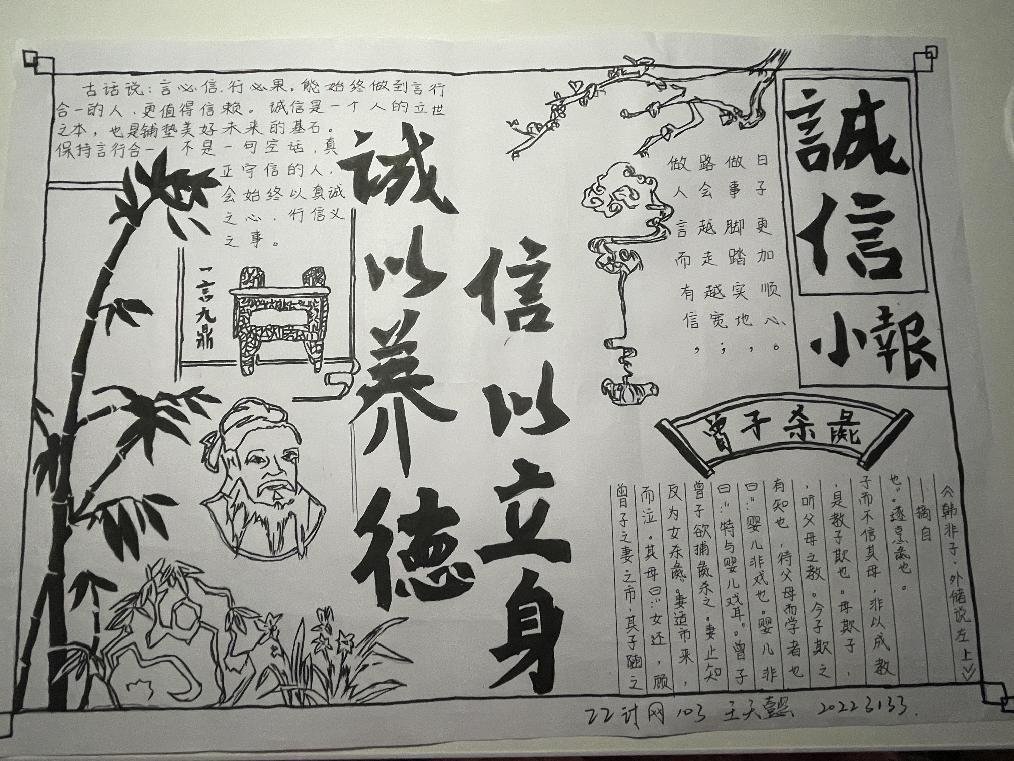 誠信
小報
古话说：言必信，行必果。能始终做到言行
合一的人，更值得信赖。诚信是一个人的立世
之本，也是铺垫美好未来的基石。
保持言行合一，不是一句空话，真
正守信的人，
会始终以真诚
之心，行信义
之事。
一言九鼎
誠以养德
信以立身
做人言而有信，
路会越走越宽；
做事脚踏实地，
日子更加顺心。
曾子杀彘
曾子之妻之市，其子随之
而泣。其母曰：“女还，顾
反为女杀彘。”妻适市来，
曾子欲捕彘杀之。妻止知
曰：“特与婴儿戏耳。”曾子
曰：“婴儿非戏也。婴儿非
有知也，待父母而学者也
，听父母之教。今子欺之
，是教子欺也。母欺子，
子而不信其母，非以成教
也。”遂烹彘也。
——摘自
《韩非子·外储说左上》
计网103